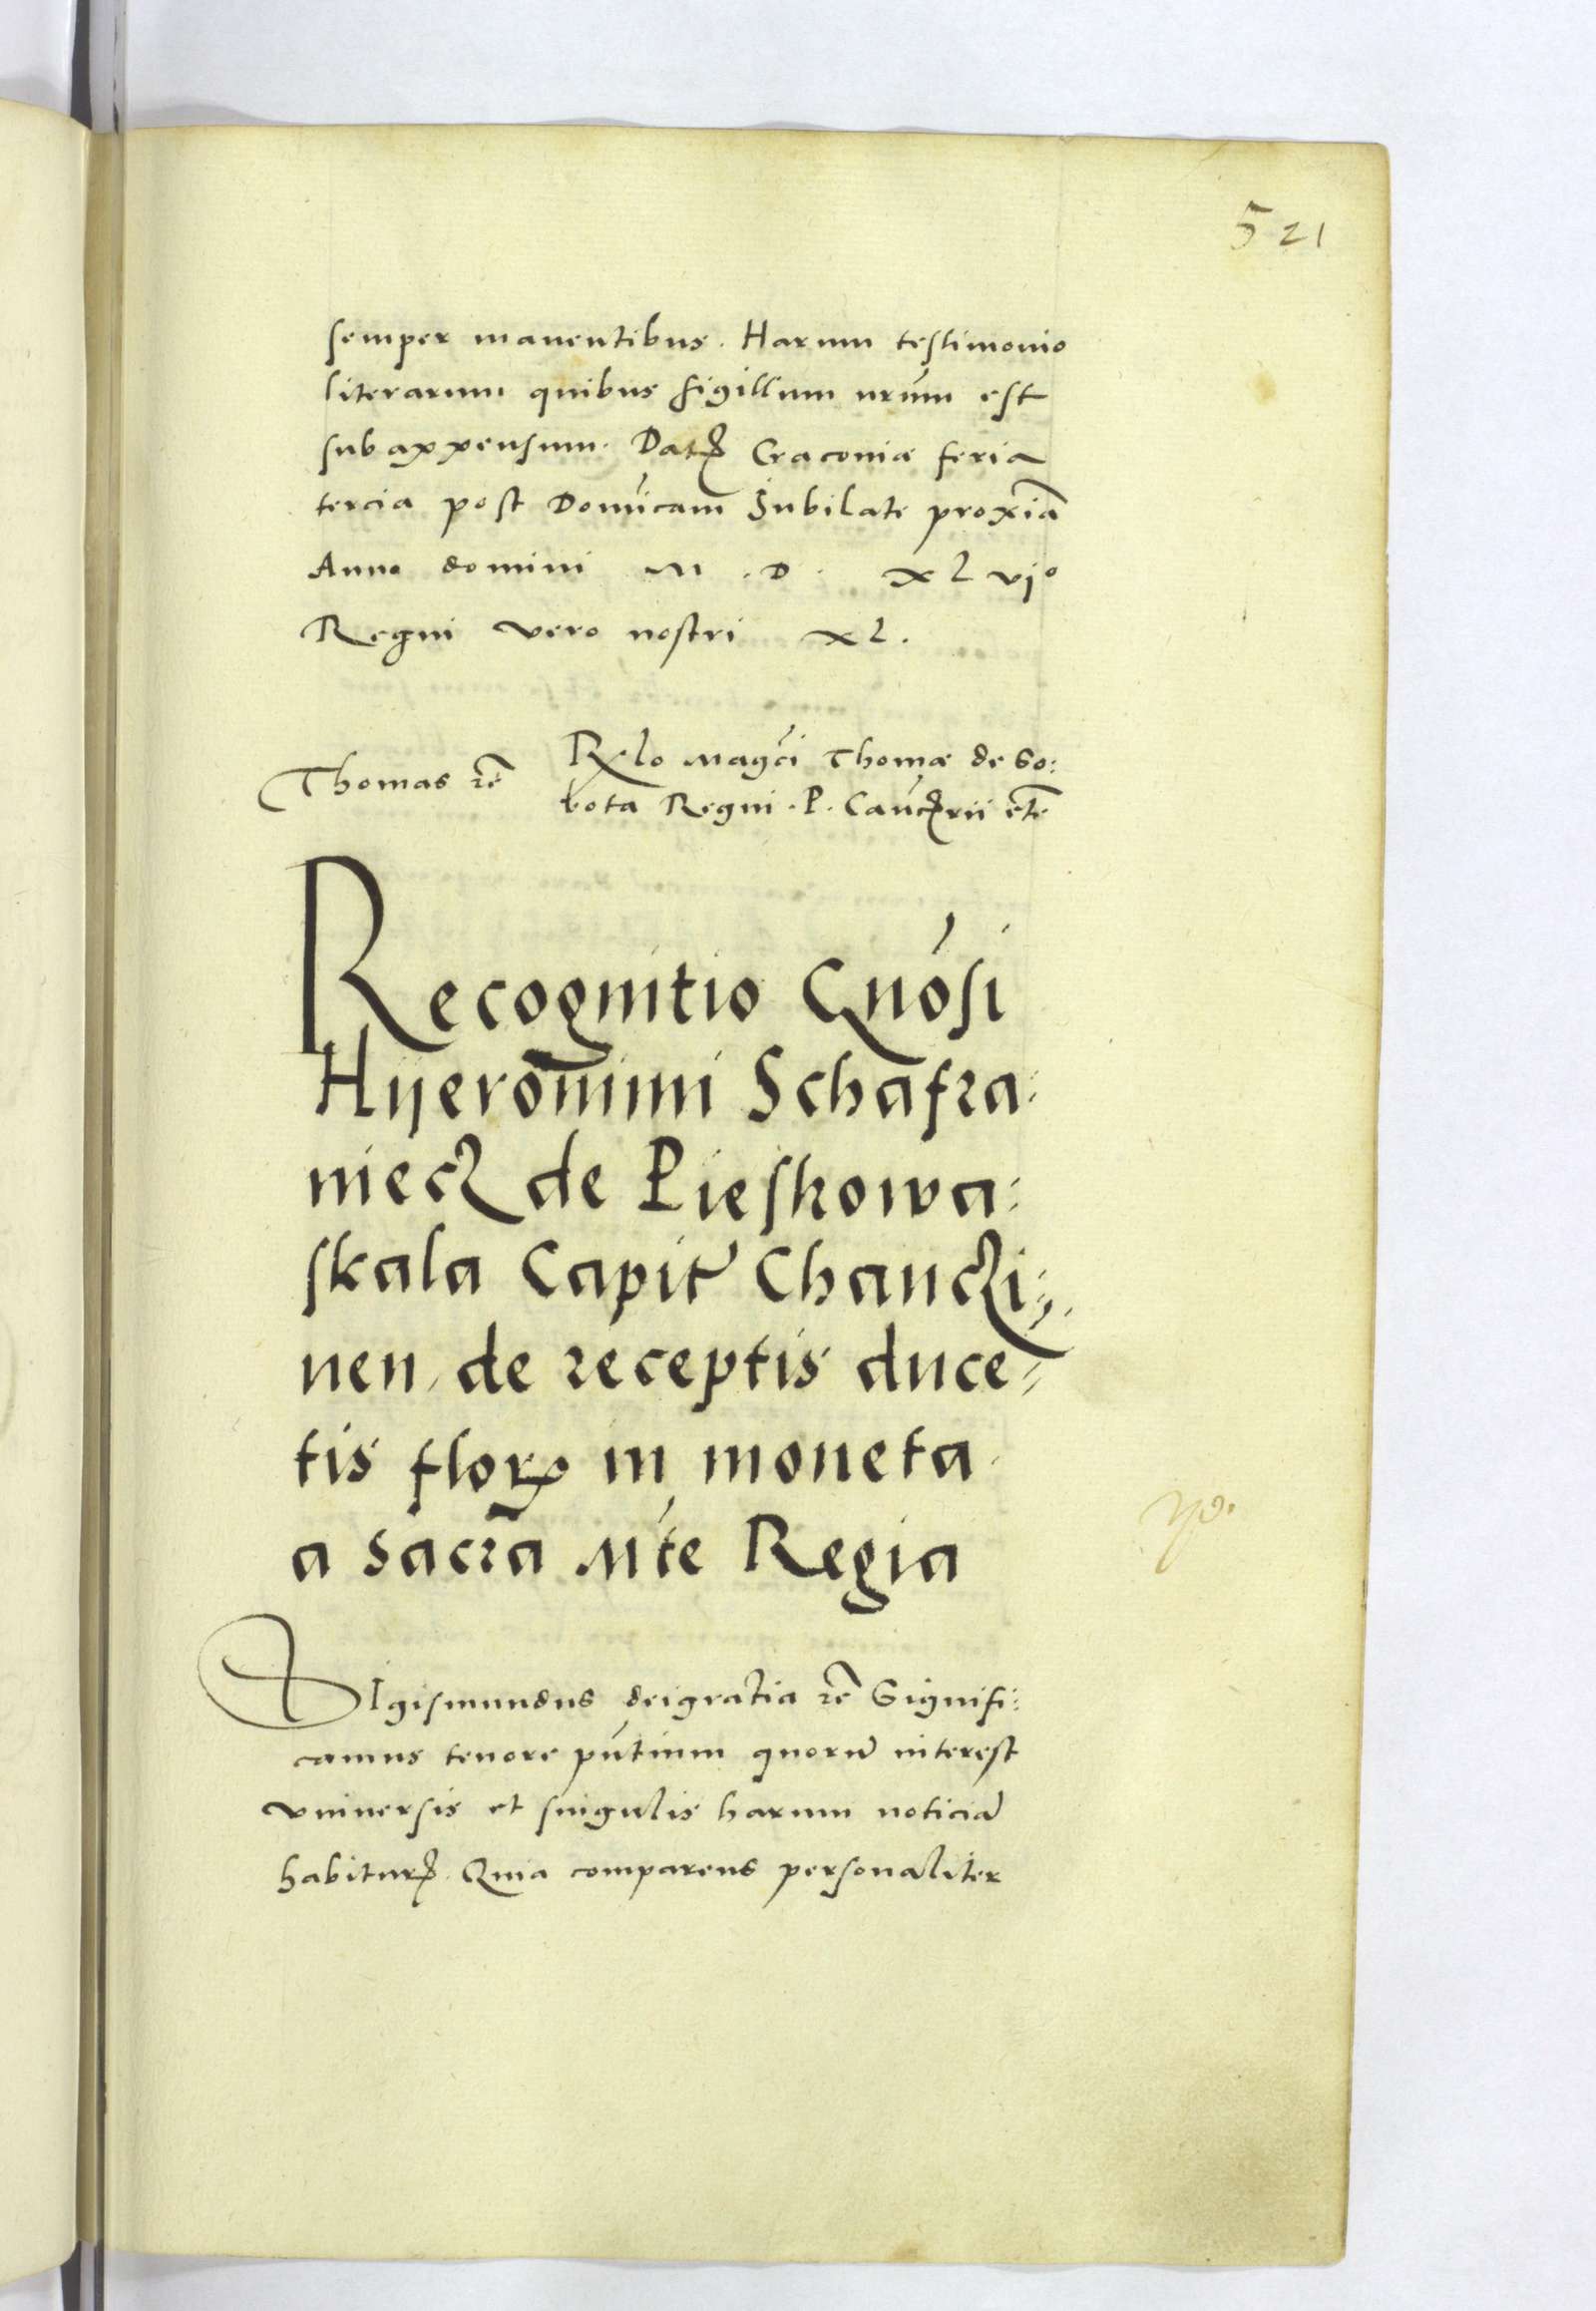 521
semper manentibus. Harum testimonio
literarum quibus sigillum nrum est
subappensum. Datꝭ Cracoviæ feria
tercia post Domicam Jubilate proxiã
Anno domini M . D . XL vjº
Regni vero nostri XL.
Thomas rẽ
Relo Magci Thomæ de So:
bota Regni . P . Cancꝭrii etc̃
Recognitio Gnosi
Hyeronimi Schafra:
niecz de Pieskowa:
skala Capit Chanczi:
nen, de receptis duce:
tis florꝭ in moneta
a Sacrã Mte Regia
SIgismundus dei gratia rẽ Signifi:
camus tenore pntium quorũ interest
vniversis et singulis harum noticiã
habiturꝭ. Quia comparens personaliter